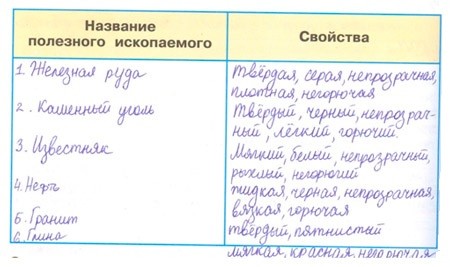 Название полезного ископаемого
Свойства
1. Железная руда
твёрдая, серая, непрозрачная,
плотная, негорючая
2. Каменный уголь
твёрдый, черный, непрозрач-
ный, лёгкий, горючий.
3. Известняк
мягкий, белый, непрозрачный,
рыхлый, негорючий
4. Нефть
жидкая, черная, непрозрачная,
вязкая, горючая
5. Гранит
твёрдый, пятнистый
6. Глина
мягкая, красная, негорючая